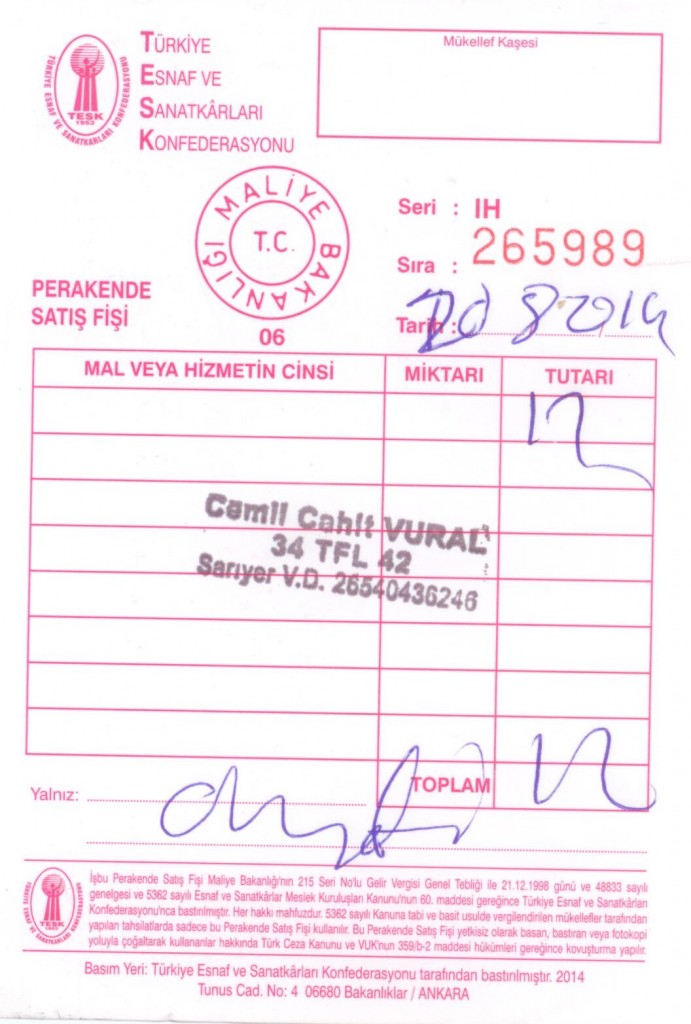 TÜRKİYE
ESNAF VE
SANATKÂRLARI
KONFEDERASYONU
TÜRKİYE ESNAF VE SANATKARLARI KONFEDERASYONU
TESK
1953
Mükellef Kaşesi
MALİYE BAKANLIĞI
T.C.
06
Seri : IH
Sıra : 265989
Tarih : 20 8 2014
PERAKENDE
SATIŞ FİŞİ
MAL VEYA HİZMETİN CİNSİ MİKTARI TUTARI
12
Cemil Cahit VURAL
34 TFL 42
Sarıyer V.D. 26540436246
TOPLAM 12
Yalnız:
TESK
İşbu Perakende Satış Fişi Maliye Bakanlığı'nın 215 Seri No'lu Gelir Vergisi Genel Tebliği ile 21.12.1998 günü ve 48833 sayılı
genelgesi ve 5362 sayılı Esnaf ve Sanatkârlar Meslek Kuruluşları Kanunu'nun 60. maddesi gereğince Türkiye Esnaf ve Sanatkârları
Konfederasyonu'nca bastırılmıştır. Her hakkı mahfuzdur. 5362 sayılı Kanuna tabi ve basit usulde vergilendirilen mükellefler tarafından
yapılan tahsilatlarda sadece bu Perakende Satış Fişi kullanılır. Bu Perakende Satış Fişi yetkisiz olarak basan, bastıran veya fotokopi
yoluyla çoğaltarak kullananlar hakkında Türk Ceza Kanunu ve VUK'nun 359/b-2 maddesi hükümleri gereğince kovuşturma yapılır.
Basım Yeri: Türkiye Esnaf ve Sanatkârları Konfederasyonu tarafından bastırılmıştır. 2014
Tunus Cad. No: 4 06680 Bakanlıklar / ANKARA